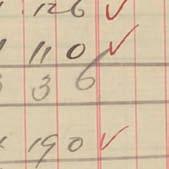 126 ✓
110 ✓
36
190 ✓